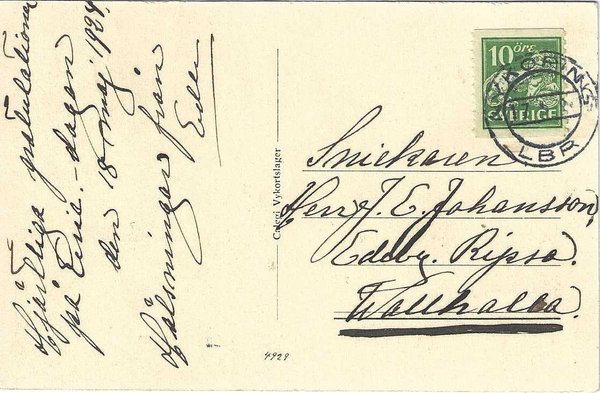 Hjärtliga gratulationer
på Eric.-dagen
den 18 maj 1934.
Hälsningar från
Calegi Vykortslager
4929
10 ÖRE
SVERIGE
NYKÖPING
LBR
Snickaren
Herr J. E. Johansson,
Edeby. Ripsa.
Wallhalla.